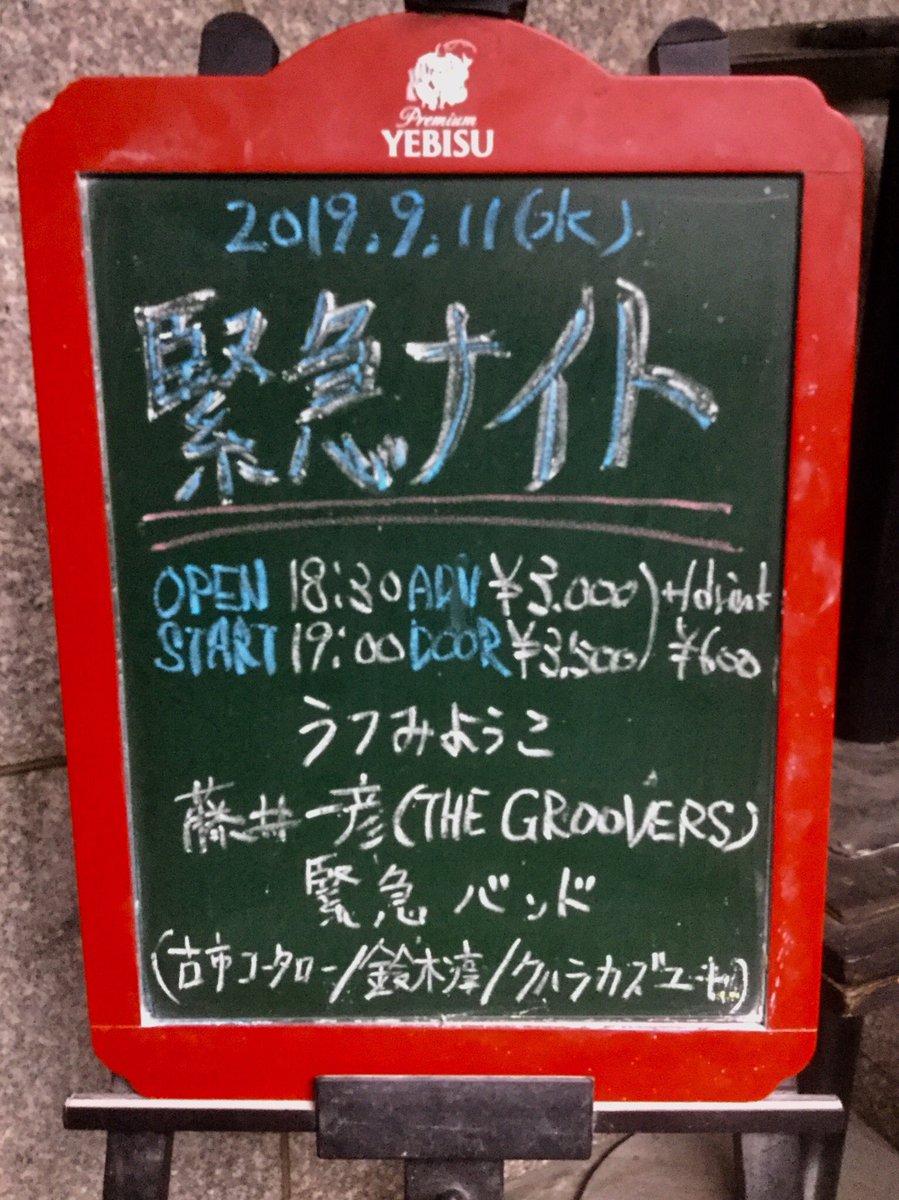 Premium
YEBISU
2019.9.11(水)
緊急ナイト
OPEN 18:30 ADV ¥3.000)+1drink
START 19:00 DOOR ¥3.500) ¥600
うつみようこ
藤井一彦(THE GROOVERS)
緊急バンド
(古市コータロー/鈴木淳/クハラカズユキ)